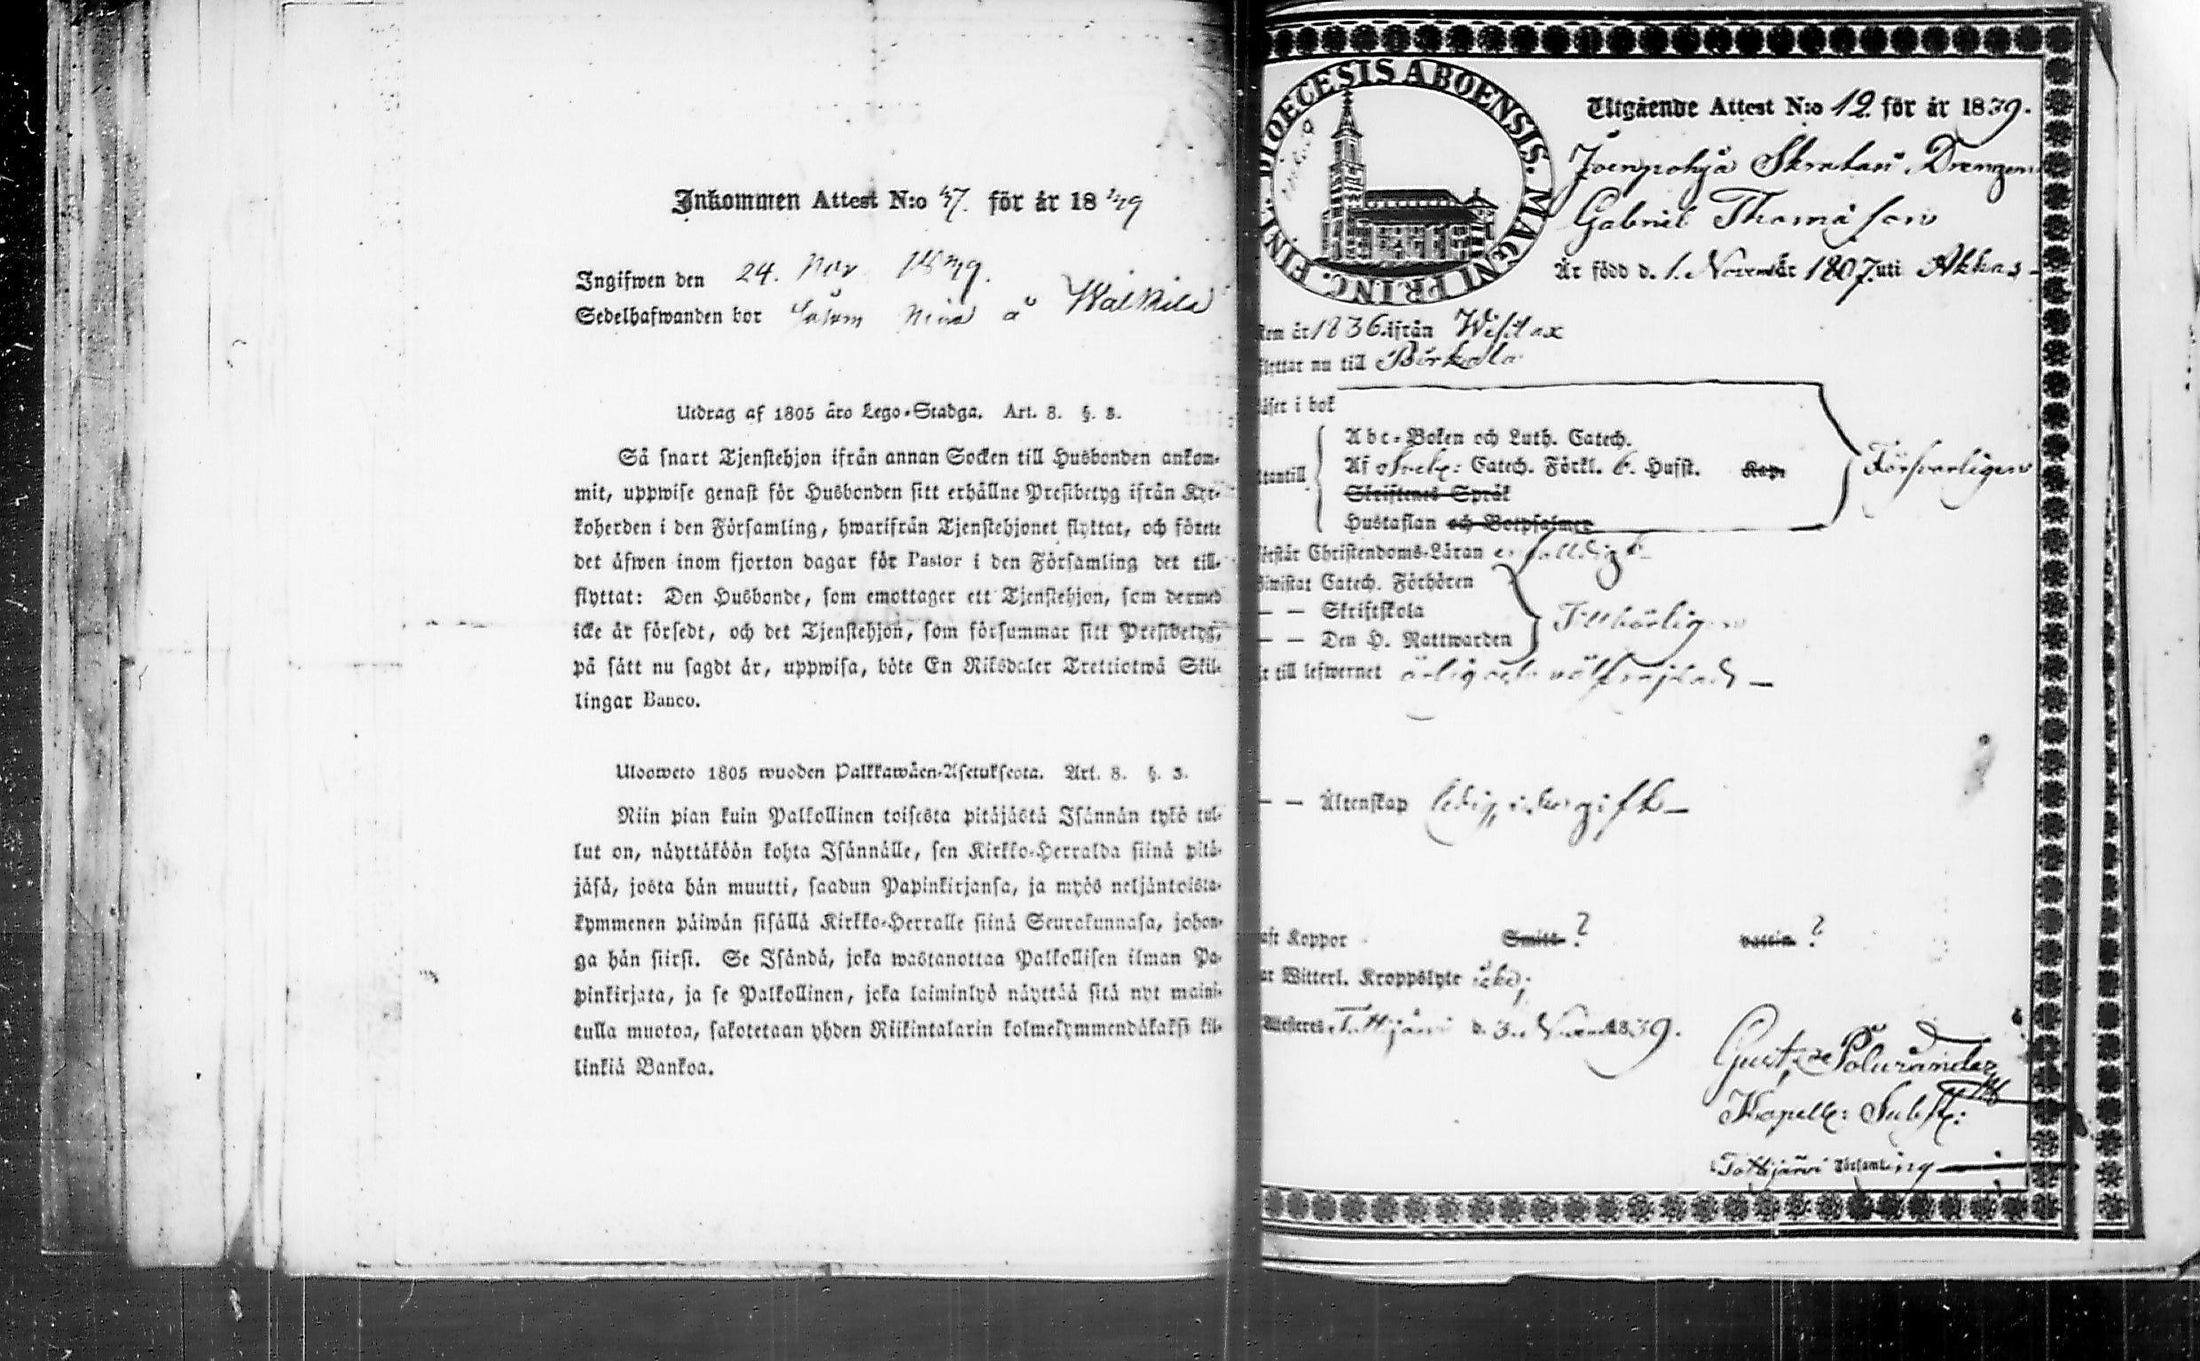 Inkommen Attest N:o 47. för år 1839
Ingifwen den 24. Nov 1839.
Sedelhafwanden bor såsom å Walkila
Utdrag af 1805 års Lego-Stadga. Art. 8. §. 3.
Så snart Tjenstehjon ifrån annan Socken till Husbonden ankom-
mit, uppwise genast för Husbonden sitt erhållne Prestbetyg ifrån Kyr-
koherden i den Församling, hwarifrån Tjenstehjonet flyttat, och förete
det äfwen inom fjorton dagar för Pastor i den Församling det till-
flyttat: Den Husbonde, som emottager ett Tjenstehjon, som dermed
icke är försedt, och det Tjenstehjon, som försummar sitt Prestbetyg,
på sätt nu sagdt är, uppwisa, böte En Riksdaler Trettiotwå Skil-
lingar Banco.
Uloosweto 1805 wuoden Palkkawäen-Asetuksesta. Art. 8. §. 3.
Niin pian kuin Palkollinen toisesta pitäjästä Isännän tykö tul-
lut on, näyttäköön kohta Isännälle, sen Kirkko-Herralda siinä pitä-
jäsä, josta hän muutti, saadun Papinkirjansa, ja myös neljäntoista-
kymmenen päiwän sisällä Kirkko-Herralle siinä Seurakunnasa, johon-
ga hän siirsi. Se Isändä, joka wastanottaa Palkollisen ilman Pa-
pinkirjata, ja se Palkollinen, joka laiminlyö näyttää sitä nyt maini-
tulla muotoa, sakotetaan yhden Riikintalarin kolmekymmendäkaksi kil-
linkiä Bankoa.
DIOECESIS ABOENSIS. MAGNI PRINC. FINL.
Utgående Attest N:o 12. för år 1839.
Joenpohja Drengen
Gabriel Thomasson
Är född d. 1. Novemb år 1807. uti Akkas
kom år 1836. ifrån Wesilax
flyttar nu till Birkala
läser i bok
Abc-Boken och Luth. Catech.
utantill Af Catech. Förkl. 6. Hufst. Kap.
Skriftenes Språk
Hustaflan och Botpsalmer
Försvarligen
förstår Christendoms-Läran enfalldigt
biwistat Catech. Förhören
— — Skriftskola
— — Den H. Nattwarden
Tillbörligen
är till lefwernet ärlig och välfräjdad
— — Äktenskap ledig
haft Koppor Smitt ? vaccin ?
har Witterl. Kroppslyte icke;
Attesteres Tottijärvi d. 3. Novemb 1839.
Gust:
Kapell: Subst:
i Tottijärvi Församling